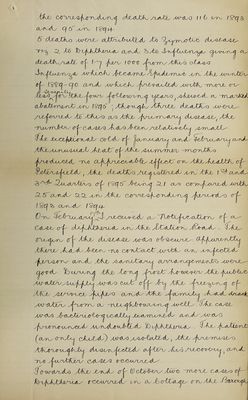 the corresponding death rate was 11·6 in 1893
and 9·5 in 1894.
5 deaths were attributed to Zymotic disease
viz 2 to Diphtheria and 3 to Influenza giving a
death rate of 1·7 per 1000 from this class
Influenza which became Epidemic in the winter
of 1889-90 and which prevailed with more or
less severity for the four following years, shewed a marked
abatement in 1895, though three deaths were
referred to this as the primary disease, the
number of cases has been relatively small
The exceptional cold of January and February and
the unusual heat of the summer months
produced no appreciable effect on the health of
Petersfield, the deaths registered in the 1st and
3rd Quarters of 1895 being 21 as compared with
25 and 22 in the corresponding periods of
1893 and 1894
On February I received a Notification of a
case of diphtheria in the Station Road. The
origin of the disease was obscure. Apparently
there had been no contact with an infected
person and the sanitary arrangements were
good. During the long frost however the public
water supply was cut off by the freezing of
the service pipes and the family had drunk
water from a neighbouring well. The case
was bacteriologically examined and was
pronounced undoubted Diphtheria. The patient
(an only child) was isolated, the premises
thoroughly disinfected after his recovery, and
no further cases occurred.
Towards the end of October two more cases of
Diphtheria occurred in a Cottage on the